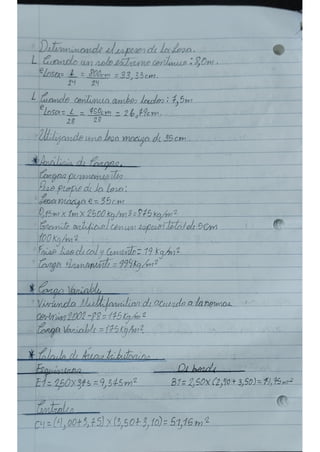 Determinando el espesor de la losa.
L Cuando un solo extremo continuo: 8,0m.
e losa = L/24 = 800cm/24 = 33,33cm.
L Cuando continua ambos lados: 7,5m
e losa = L/28 = 750cm/28 = 26,79cm.
Utilizando una losa maciza de 35cm.
* Análisis de Cargas.
Cargas permanentes
Peso propio de la losa:
Losa maciza e = 35cm
0,35m x 1m x 2500 kg/m3 = 875 kg/m2
Granito artificial con un espesor total de 5cm
100 kg/m2
Friso liso de cal y cemento = 19 kg/m2
Carga Permanente = 994 kg/m2
* Carga Variable
Vivienda Multifamiliar de acuerdo a la norma
covenin 2002-88 = 175 kg/m2
Carga Variable = 175 kg/m2
* Calculo de Áreas tributarias
Esquineras De borde
E1 = 2,50 x 3,75 = 9,375m2 B1 = 2,50 x (2,40 + 3,50) = 14,75m2
Centrales
C4 = (4,00 + 3,75) x (3,50 + 3,10) = 51,15 m2